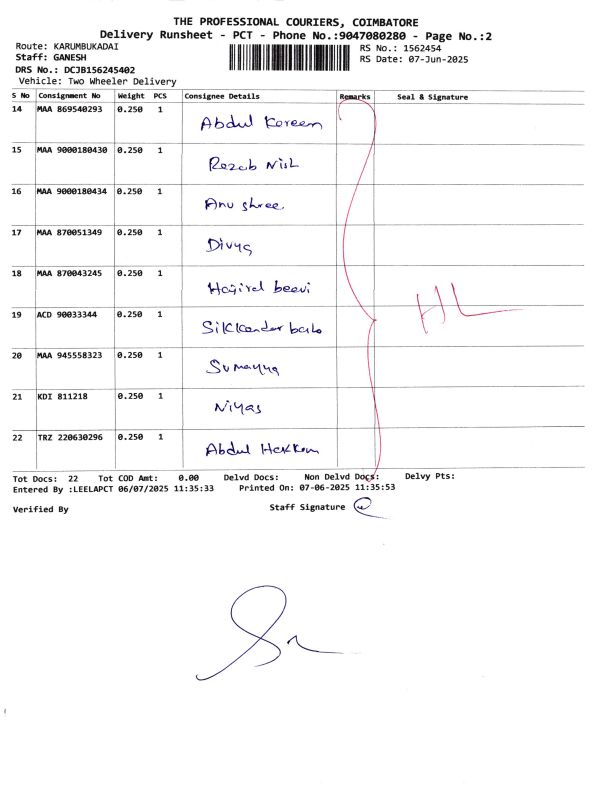 THE PROFESSIONAL COURIERS, COIMBATORE
Delivery Runsheet - PCT - Phone No.:9047080280 - Page No.:2
Route: KARUMBUKADAI RS No.: 1562454
Staff: GANESH RS Date: 07-Jun-2025
DRS No.: DCJB156245402
Vehicle: Two Wheeler Delivery
S No Consignment No Weight PCS Consignee Details Remarks Seal & Signature
14 MAA 869540293 0.250 1 Abdul Kareem
15 MAA 9000180430 0.250 1
16 MAA 9000180434 0.250 1 Anu shree
17 MAA 870051349 0.250 1 Divya
18 MAA 870043245 0.250 1 beevi
19 ACD 90033344 0.250 1
HL
20 MAA 945558323 0.250 1 Sumayya
21 KDI 811218 0.250 1 Niyas
22 TRZ 220630296 0.250 1 Abdul
Tot Docs: 22 Tot COD Amt: 0.00 Delvd Docs: Non Delvd Docs: Delvy Pts:
Entered By :LEELAPCT 06/07/2025 11:35:33 Printed On: 07-06-2025 11:35:53
Verified By Staff Signature